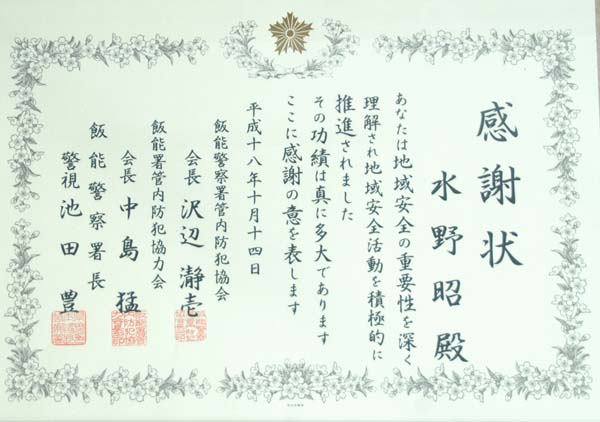 感謝状
水野昭殿
あなたは地域安全の重要性を深く
理解され地域安全活動を積極的に
推進されました
その功績は真に多大であります
ここに感謝の意を表します
平成十八年十月十四日
飯能警察署管内防犯協会
会長 沢辺瀞壱
飯能署管内防犯協力会
会長 中島猛
飯能警察署長
警視 池田豊